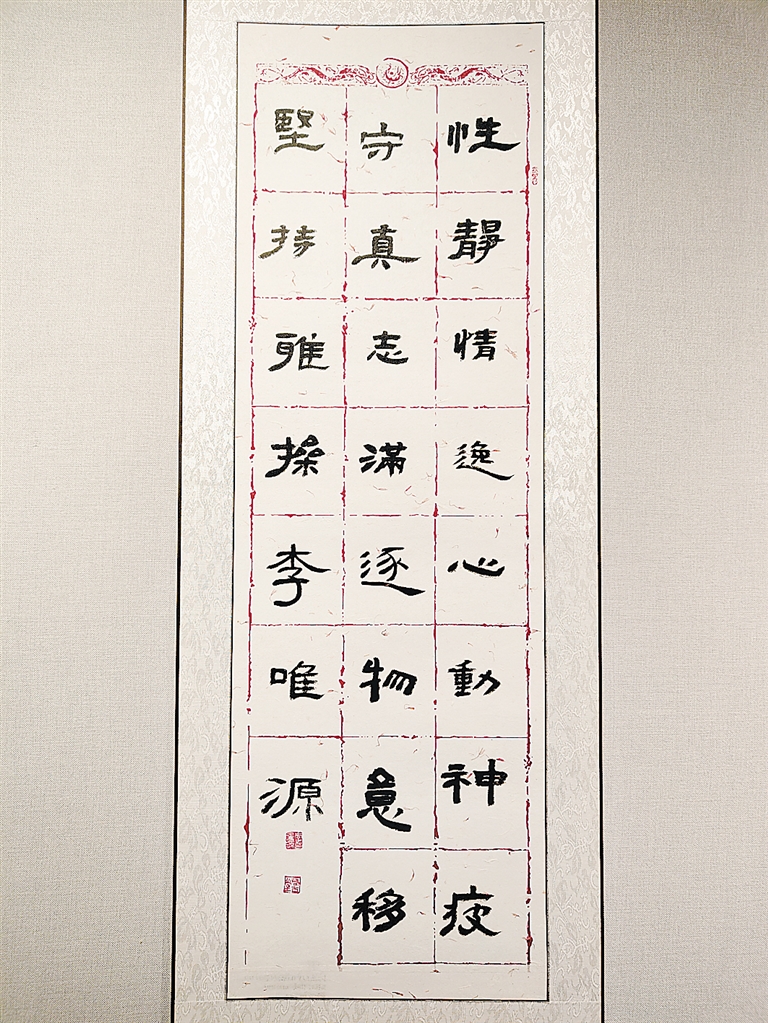 性靜情逸心動神疲
守真志滿逐物意移
堅持雅操李唯源